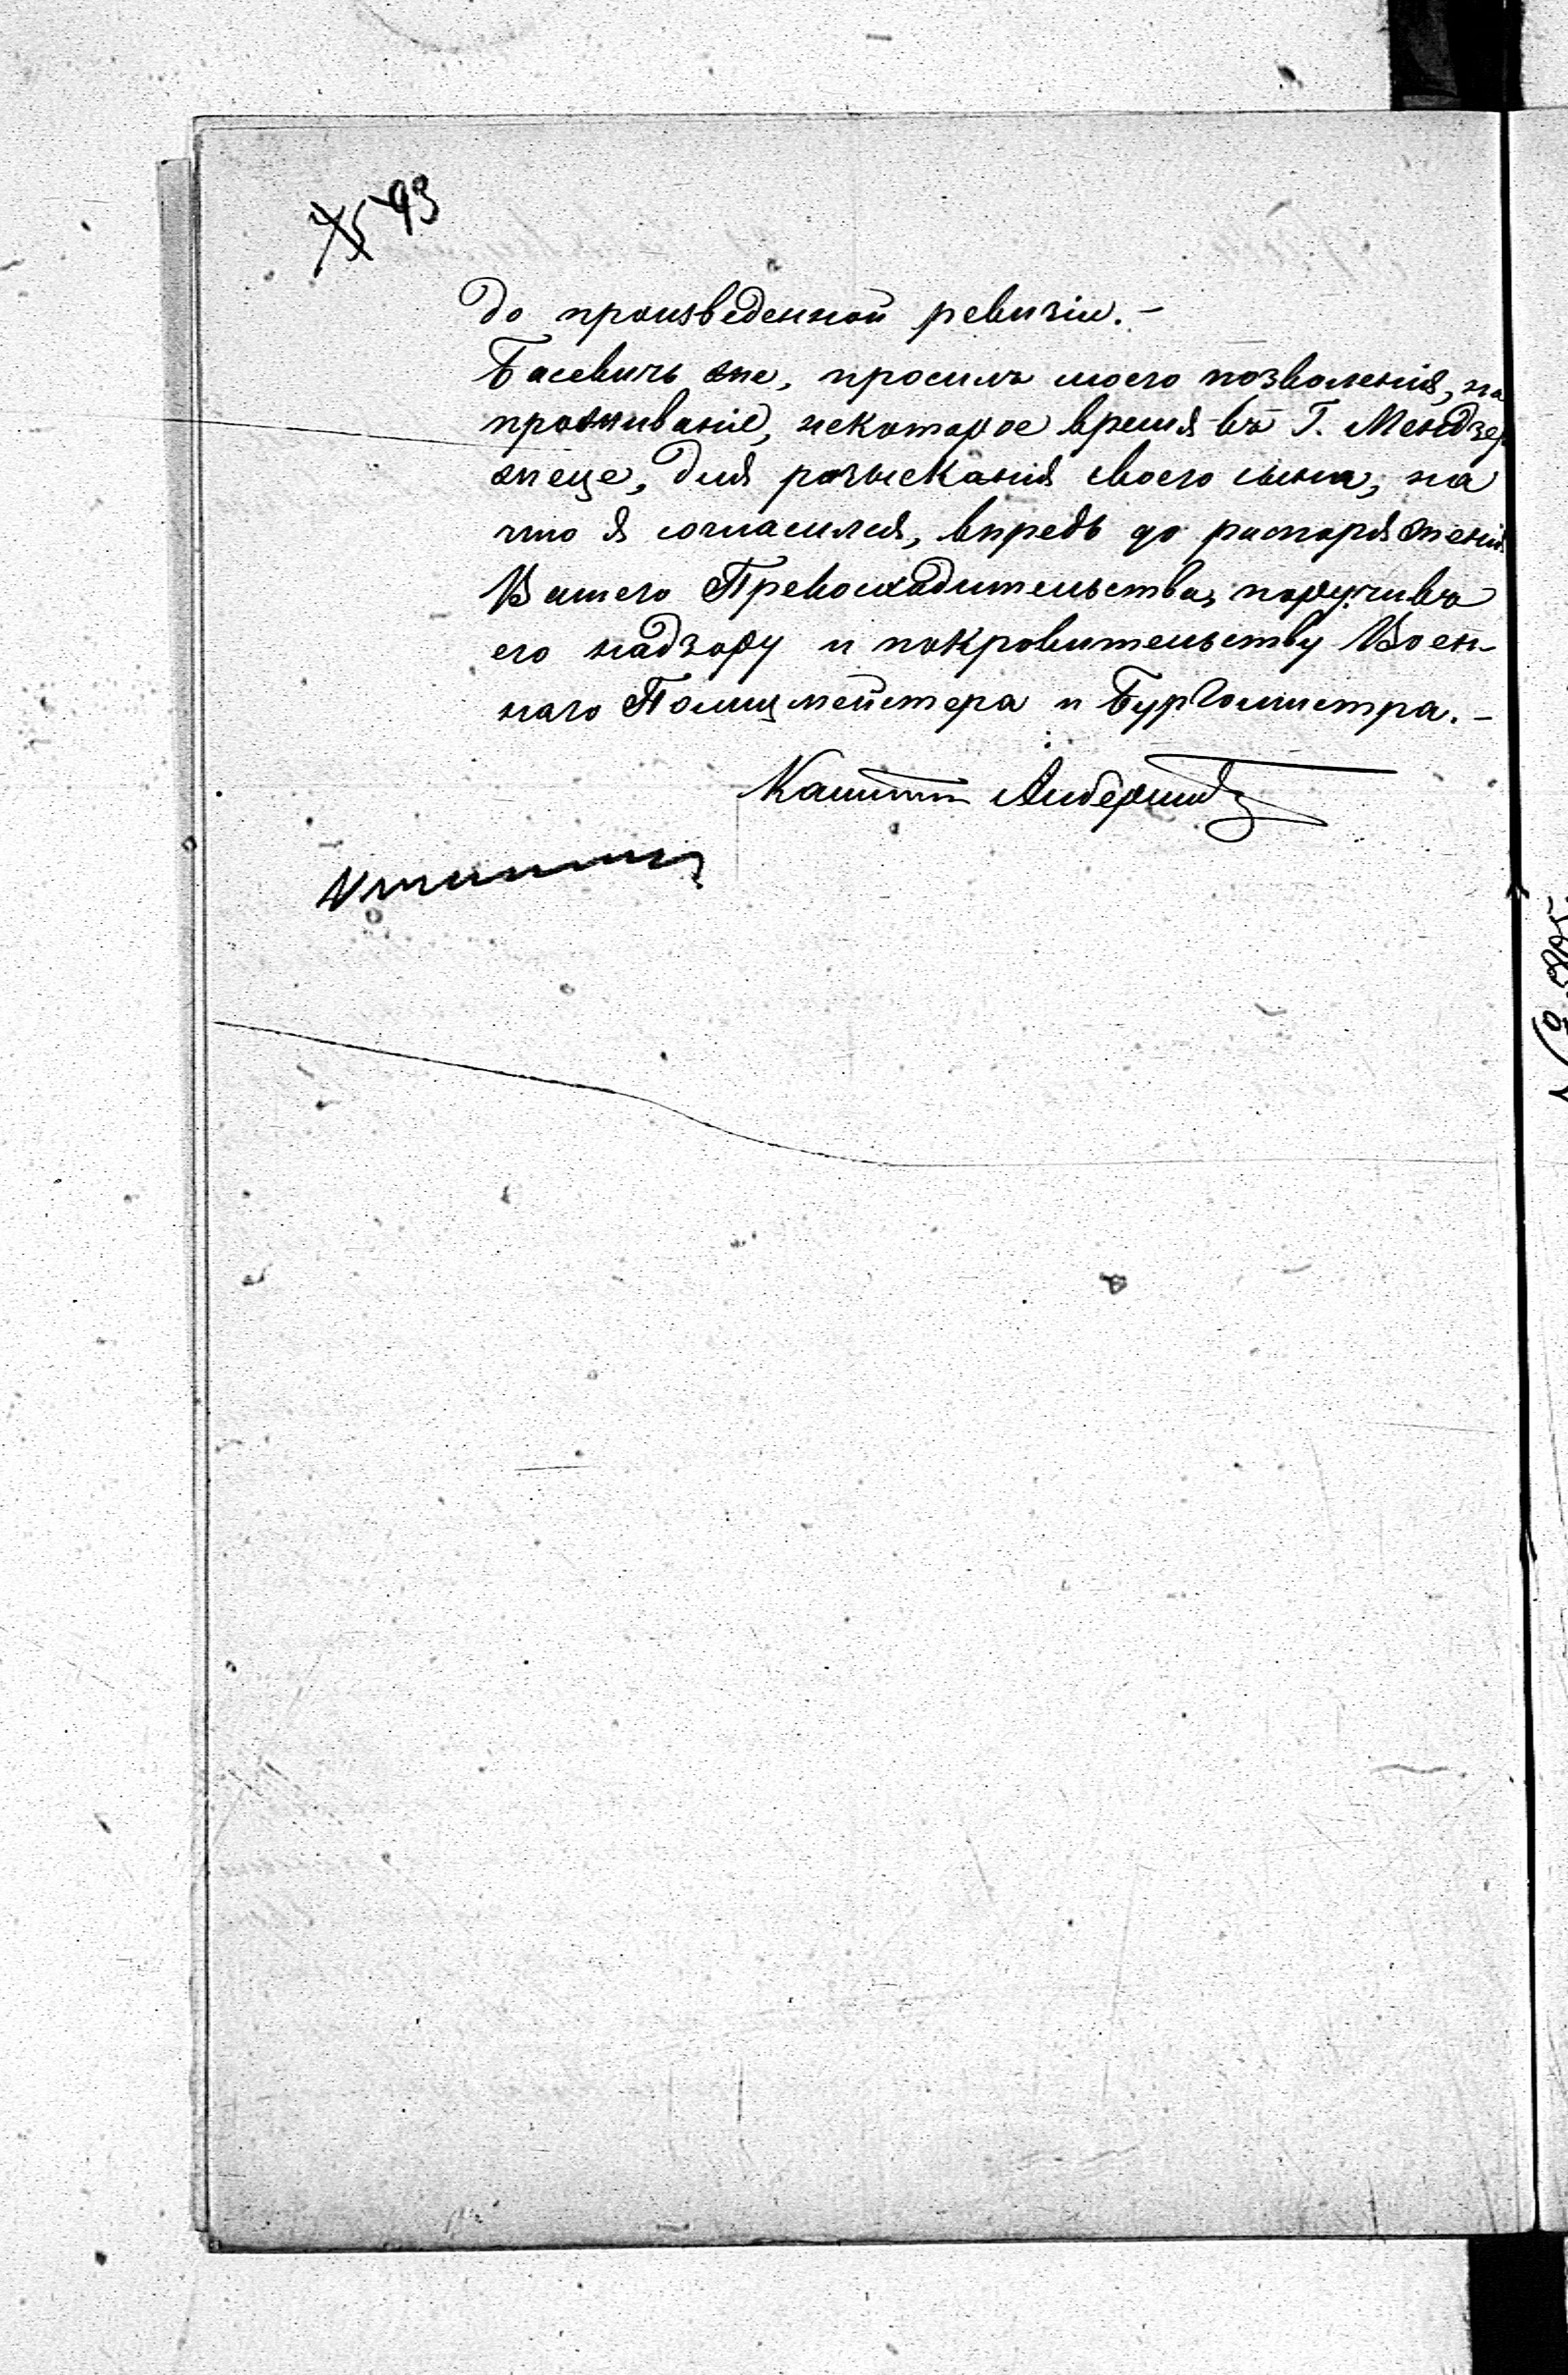 93
до произведенной ревизіи. –
Басевичь же, просилъ моего позволенія, на
проживаніе, некоторое время въ Г. Мендзер
жеце, для розысканія своего сына, на
что я согласился, впредь до распоряженія
Вашего Превосходительства, поручивъ
его надзору и покровительству Воен-
наго Полицмейстера и Бургомистра. –
Капитан